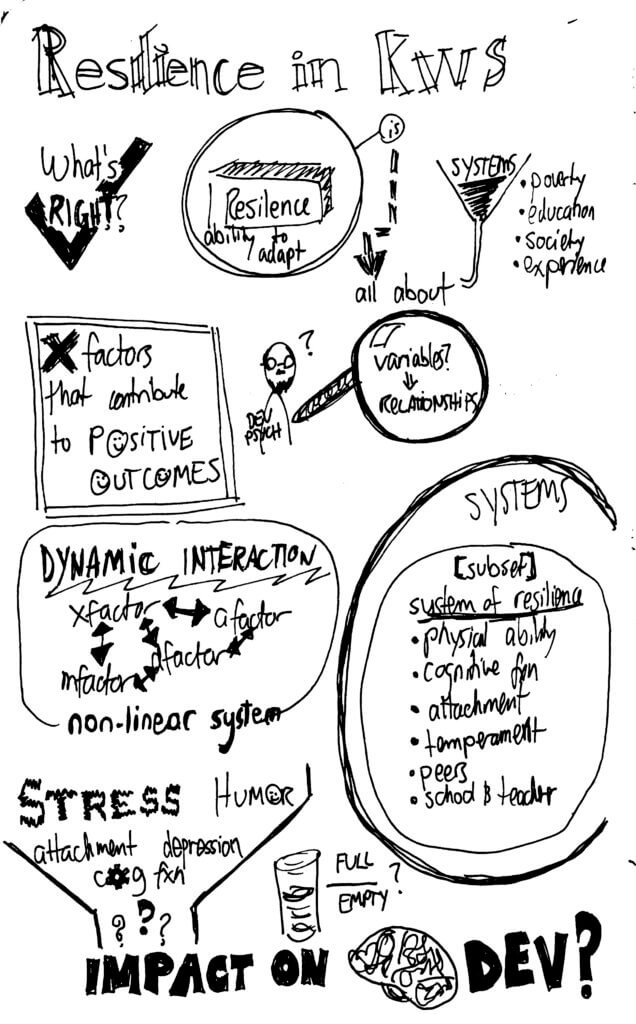 Resilience in Kws
What's
RIGHT?
Resilence
ability to
adapt
is
all about
SYSTEMS
• poverty
• education
• society
• experience
X factors
that contribute
to POSITIVE
OUTCOMES
?
DEV
PSYCH
variables?
RELATIONSHIPS
DYNAMIC INTERACTION
xfactor afactor
mfactor dfactor
non-linear system
SYSTEMS
[subset]
system of resilience
• physical ability
• cognitive fxn
• attachment
• temperament
• peers
• school & teacher
STRESS HUMOR
attachment depression
cog fxn
? ? ?
FULL
EMPTY?
IMPACT ON DEV?